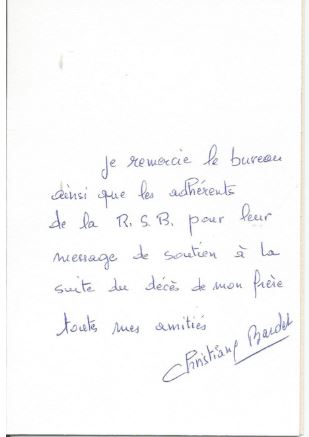 Je remercie le bureau
ainsi que les adhérents
de la R.S.B. pour leur
message de soutien à la
suite du décès de mon frère
toutes mes amitiés
Christiane Bardet